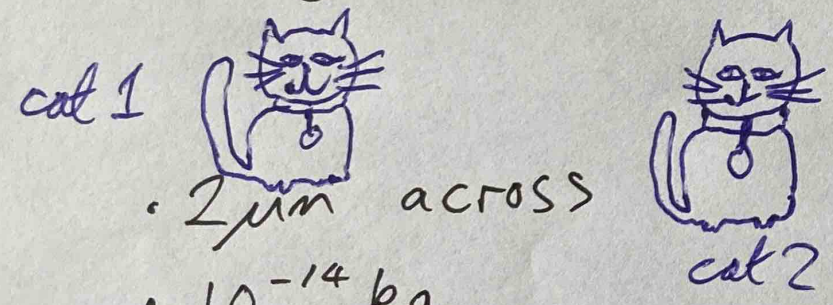 cat 1
• 2 μm across
cat 2
• 10⁻¹⁴ kg